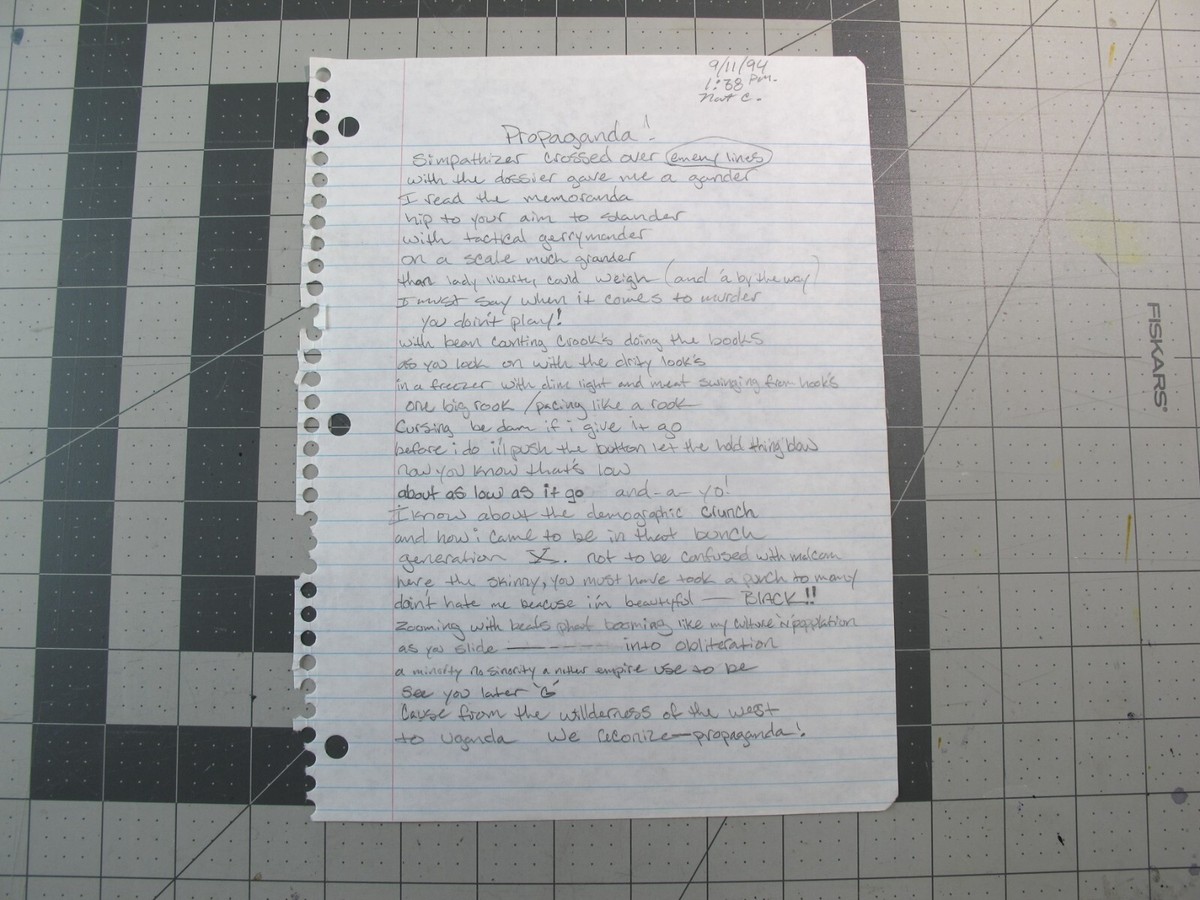 9/11/94
1:38 pm.
Nat C.
Propaganda!
Simpathizer crossed over emeny lines
with the dossier gave me a gander
I read the memoranda
hip to your aim to slander
with tactical gerrymander
on a scale much grander
than lady liberty could weigh (and a by the way)
I must say when it comes to murder
you doin't play!
with bean conting crook's doing the books
as you look on with the dirty look's
in a freezer with dim light and meat swinging from hook's
one big rook / pacing like a rook
Cursing be dam if i give it go
before i do i'll push the button let the hold thing blow
now you know that's low
about as low as it go and-a- yo!
I know about the demographic crunch
and how i came to be in that bunch
generation X. not to be confused with malcom
here the skinny, you must have took a punch to many
doin't hate me beacuse i'm beautyful — BLACK!!
zooming with beats phat booming like my culture in population
as you slide ------- into obliteration
a minority no sinority a nuther empire use to be
see you later "G"
Cause from the willderness of the west
to Uganda We reconize—propaganda!
FISKARS